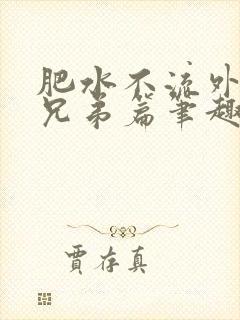 肥水不流外
兄弟篇笔趣
賈存真